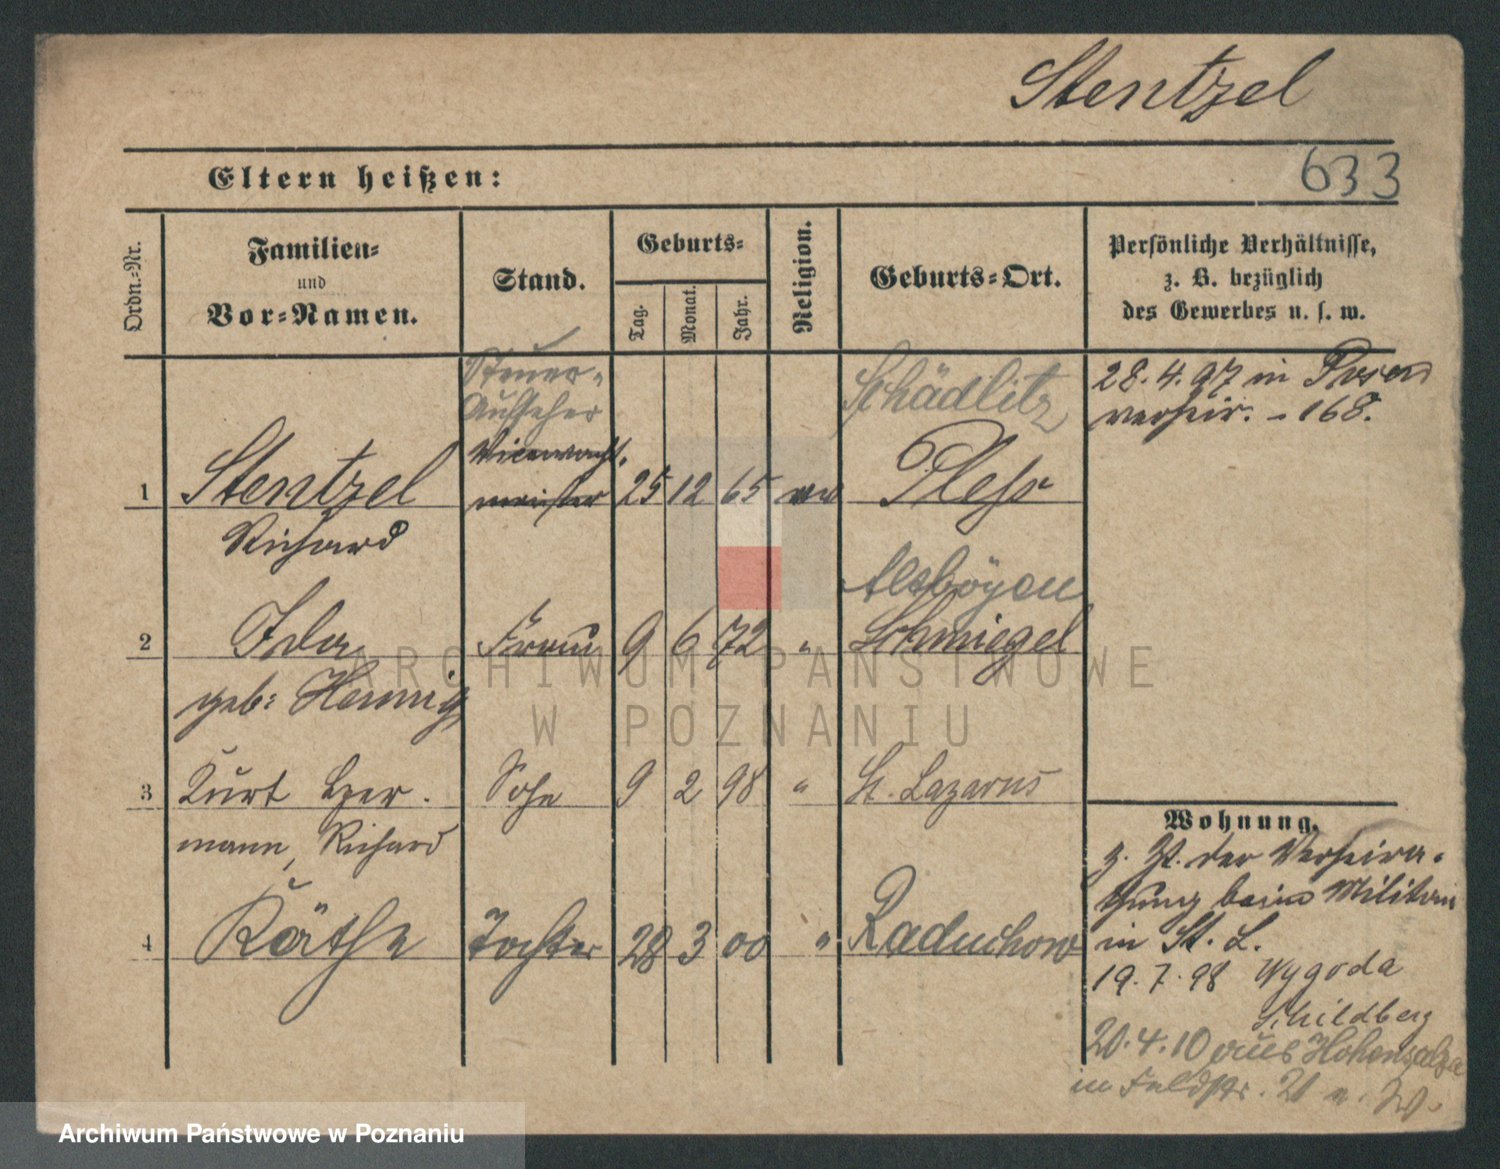 Stentzel
633
Eltern heißen:
Ordn.-Nr.
Familien-
und
Vor-Namen.
Stand.
Geburts-
Tag.
Monat.
Jahr.
Religion.
Geburts-Ort.
Persönliche Verhältnisse,
z. B. bezüglich
des Gewerbes u. s. w.
Steuer-
Aufseher
Vicewacht-
meister
1 Stentzel 25 12 65 ev
Richard
Schädlitz
Pless
28.4.97 in Posen
verheir. - 168.
2 Ida Frau 9 6 72 "
geb: Hennig
Schmiegel
3 Kurt Her-
mann, Richard
Sohn 9 2 98 " St. Lazarus
4 Käthe Tochter 28 3 00 " Raduchow
Wohnung.
z. Zt. der Verheira-
thung beim Militair
in St. L.
19.7.98 Wygoda
Schildberg
20.4.10 aus Hohensalza
in Feldstr.
ARCHIWUM PAŃSTWOWE
W POZNANIU
Archiwum Państwowe w Poznaniu